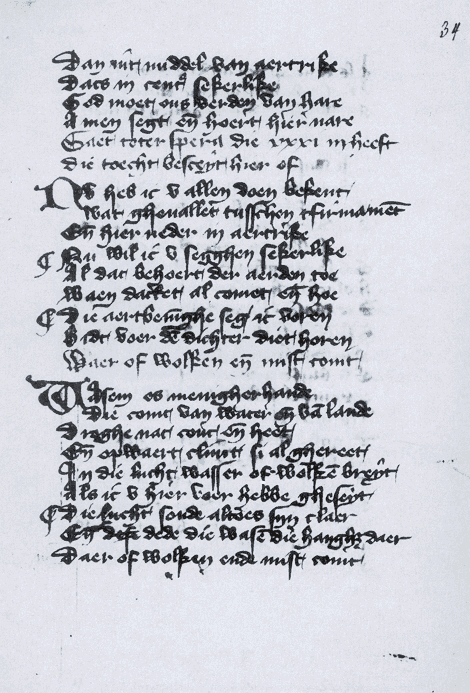 34
Dan int middel van aertrike
Dats in centrum sekerlike
God moet ons verden van hare
Amen segt en hoert hier nare
Gaet toter spera die xxxi in heeft
die toecht bescijt hier of
Nv heb ic v allen doen bekent
wat gheuallet tusschen tfirmament
En hier neder in aertrike
Nu wil ic v segghen sekerlike
Al dat behoert der aerden toe
waen dattet al comet en hoe
Die aertbeuinghe seg ic voren
Bidt voer den dichter diet horen
Waer of wolken en mist comt
Wasem es menigherhande
Die comt van water en van lande
Droghe nat cout en heet
En opwaert climt si al ghereet
In die lucht wasser of wolken breijt
Als ic v hier voer hebbe gheseijt
Die lucht soude altoes sijn claer
En dede die wasem die hanghet daer
Daer of wolken ende mist comt